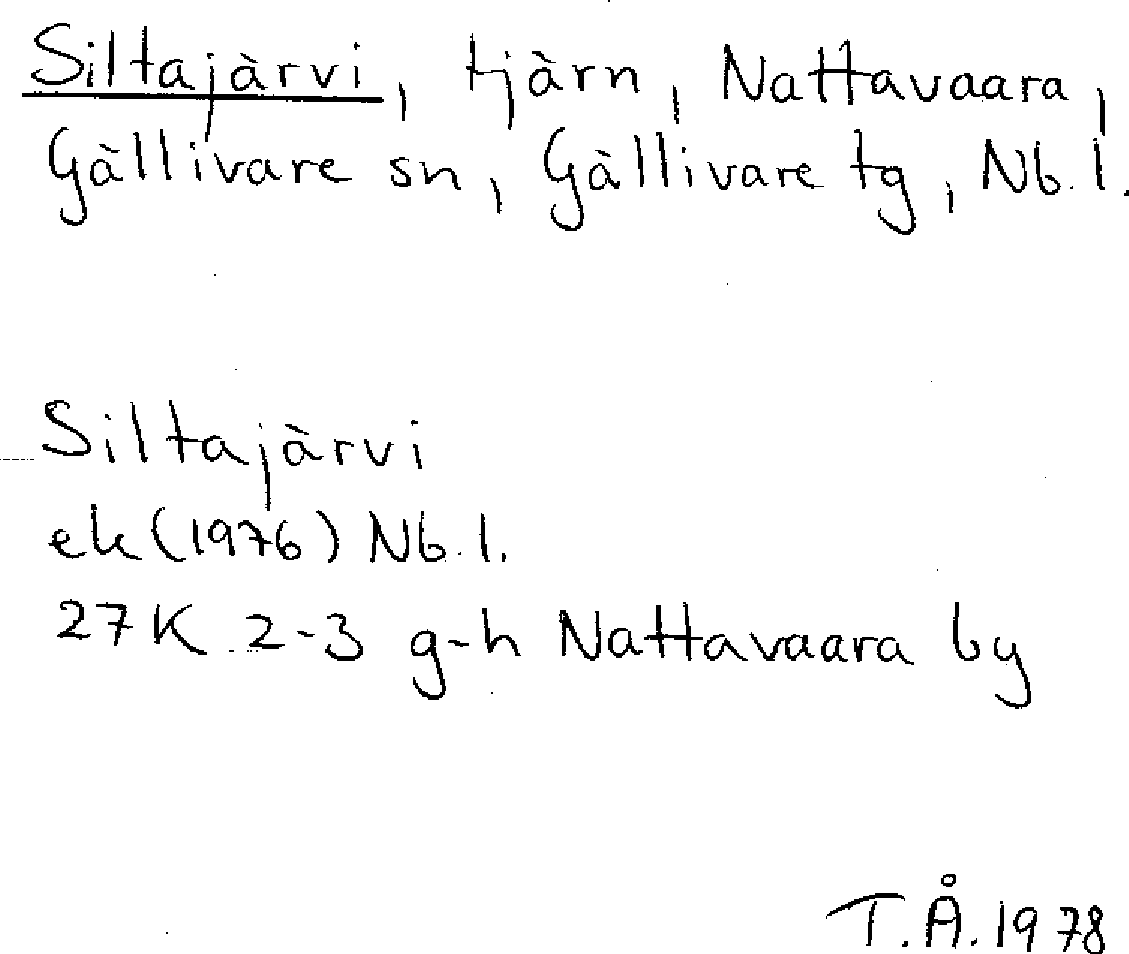 Siltajärvi, tjärn, Nattavaara,
Gällivare sn, Gällivare tg, Nb. l.
Siltajärvi
ek (1976) Nb. l.
27K 2-3 g-h Nattavaara by
T.Å. 1978